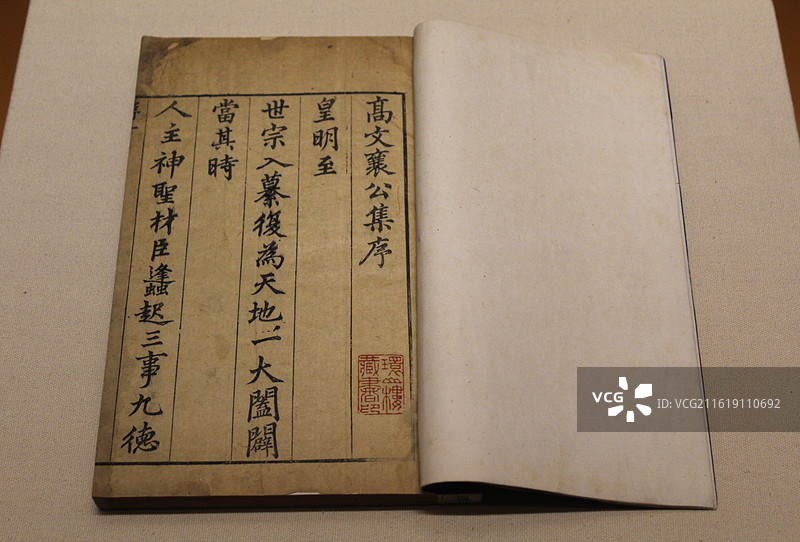 高文襄公集序
皇明至
世宗入纂復為天地一大闔闢
當其時
人主神聖材臣蠭起三事九德
藏書印
VCG
VCG
ID: VCG211619110692